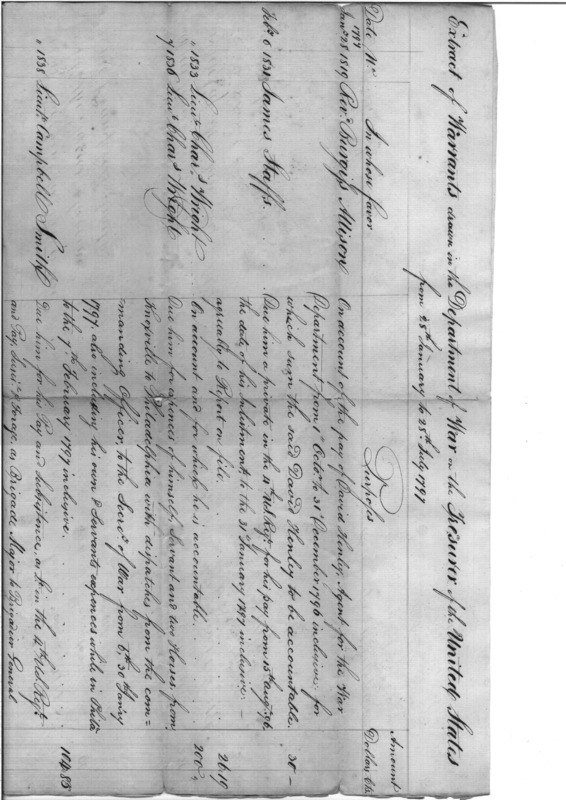 Extract of Warrants drawn in the Department of War on the Tresurer of the United States
from 25th January to 25th July 1797
Date No. In whose favor Purposes Amount
Dollars Cts
1797
Jany 25 1819 Revd. Burgiss Allison On account of the pay of David Henley, Agent for the War
Department from 1 Octo. to 31 December 1796 inclusive for
which sign the said David Henley to be accountable.
Feby. 6 1831 James Staffs. Due him a private in the Regt. for his pay from 15th Augt. 96
the date of his Inlistment, to the 31st January 1797 inclusive
agreeably to Report on file. 26 19
" 1833 Lieut. Chars. Wright On account and for which he is accountable. 200
7 1836 Lieut. Chars. Wright Due him for expences of himself, servant and two Horses, from
Knoxville to Philadelphia with dispatches from the com-
manding Officer, to the Secrey. of War from 30th Janry
1797, also including his own & Servants expences while in Phila
to the 7th February 1797 inclusive. 104 85
" 1838 Lieut. Campbell Smith Due him for his Pay and subsistence, as Lt. in the 4th U.S. Regt.
and Pay, & Forage, as Brigade Major to Brigadier General